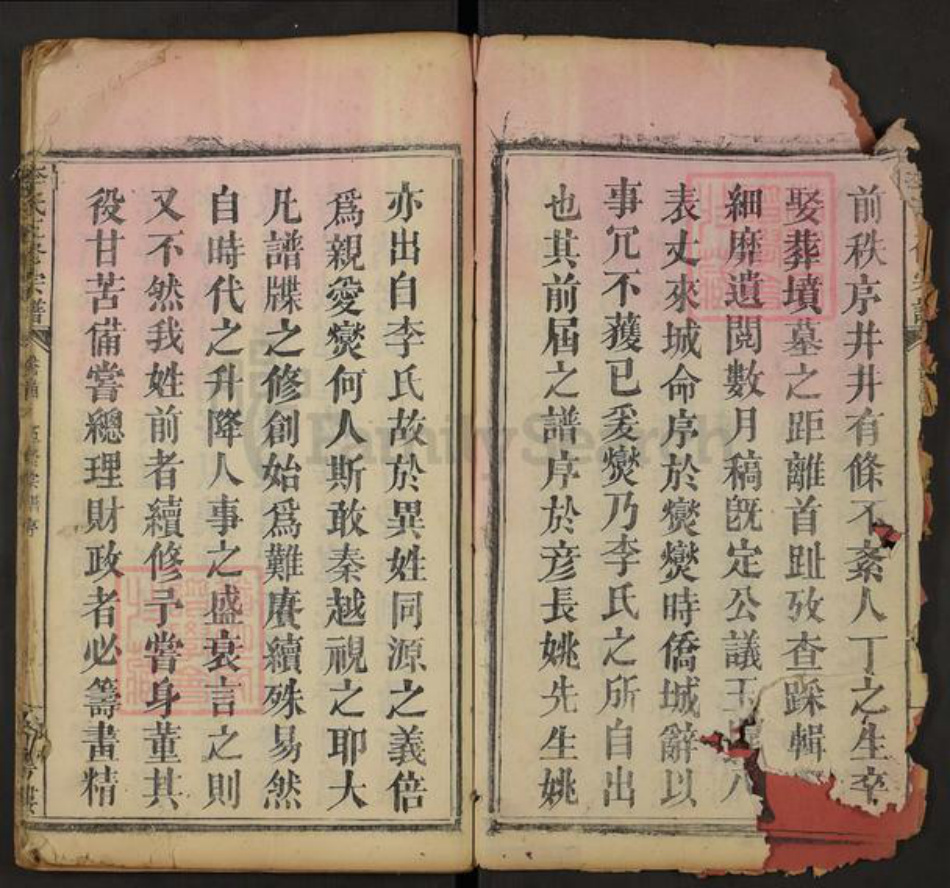 前秩序井井有條不紊人丁之生卒
娶葬墳墓之距離首趾攷查踩輯
細靡遺閱數月稿旣定公議玉
表丈來城命序於爕爕時僑城辭以
事冗不獲已爰爕乃李氏之所自出
也其前屆之譜序於彦長姚先生姚
亦出自李氏故於異姓同源之義倍
爲親愛爕何人斯敢秦越視之耶大
凡譜牒之修創始爲難賡續殊易然
自時代之升降人事之盛衰言之則
又不然我姓前者續修予嘗身董其
役甘苦備嘗總理財政者必籌畫精
李氏五修宗譜
FamilySearch